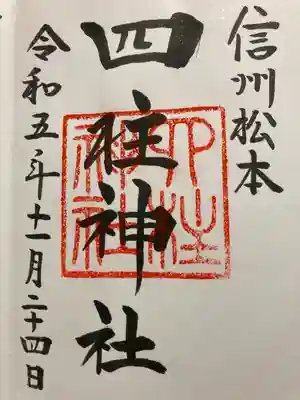 信州松本
四柱神社
令和五年十一月二十四日
四柱
神社